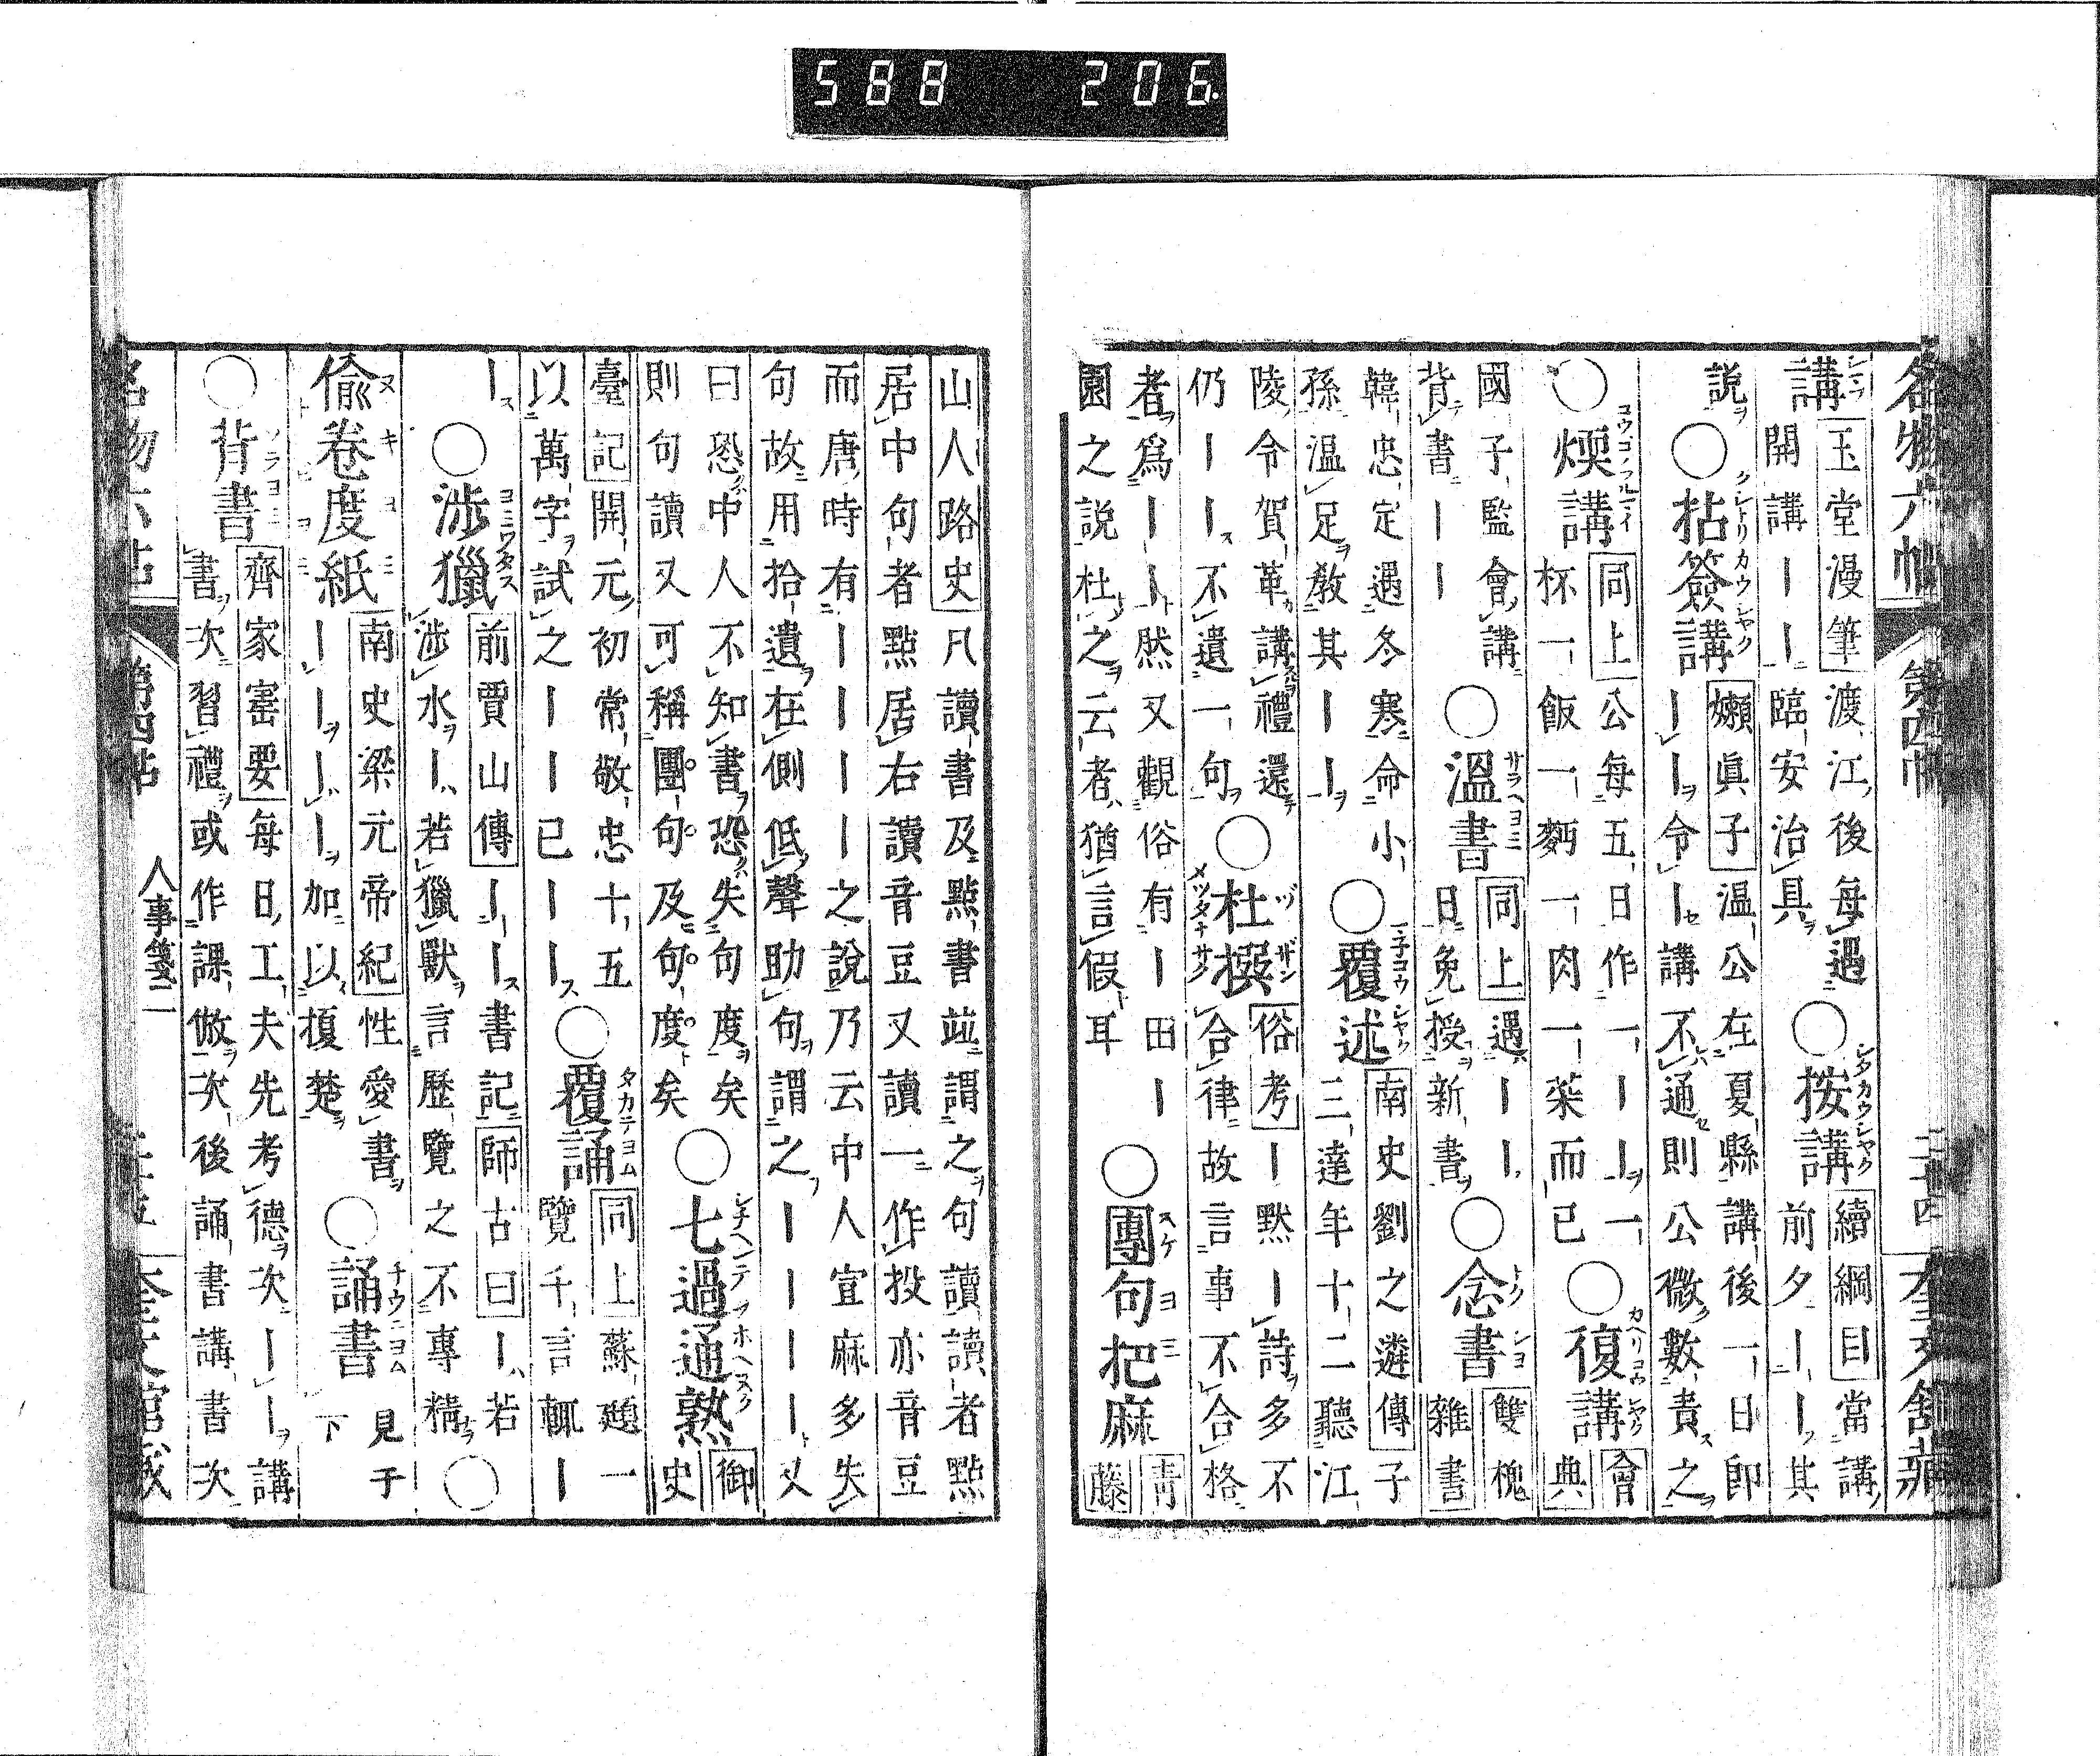 588 206
名物六帖 第四帖 二十四 奎文館蔵
講 玉堂漫筆 渡江後每遇
開講ーー臨安治具
○按講 續綱目 當講
前夕ーー其
説
○拈簽講 嬾眞子 温公在夏縣講後一日即
ーー令ー講不通則公微數責之
○煗講 同上 公每五日作一ーー一
杯一飯一麪一肉一菜而已
○復講 會
典
國子監會講
背書ーー
○温書 同上 遇ーー
日免授新書
○念書 雙槐
雜書
韓忠定遇冬寒命小
孫温足教其ーー
○覆述 南史劉之遴傳 子
三達年十二聽江
陵令賀革講禮還
仍ーー不遺一句
○杜撰 俗考 ー默ー詩多不
合律故言事不合格
者爲ーー然又觀俗有ー田ー
園之説杜之云者猶言假耳
○團句把麻 青
藤
山人路史 凡讀書及點書竝謂之句讀讀者點
居中句者點居右讀音豆又讀一作投亦音豆
而唐時有ーーーー之説乃云中人宣麻多失
句故用拾遺在側低聲助句謂之ーーーー又
曰恐中人不知書恐失句度矣
則句讀又可稱團句及句度矣
○七過通熟 御
史
臺記 開元初常敬忠十五
以萬字試之ーー已ーー
○覆誦 同上 蘇頲一
覽千言輒ー
ー
○涉獵 前賈山傳 ーー書記 師古曰 ー若
涉水ー若獵獸言歷覽之不專精
○
偸卷度紙 南史梁元帝紀 性愛書
ーーーー加以榎楚
○誦書 見于
下
○背書 齊家寚要 每日工夫先考德次ーー講
書次習禮或作課倣次後誦書講書次
名物六帖 第四帖 人事箋二 奎文館蔵